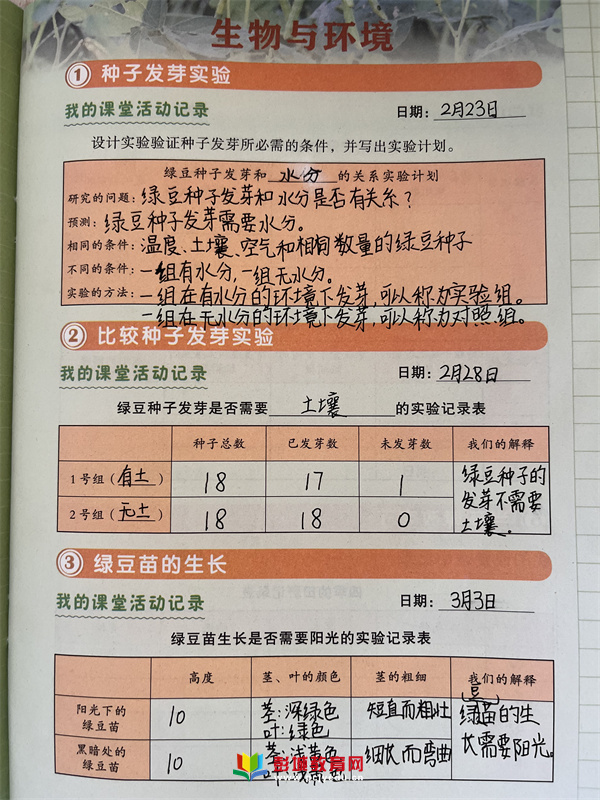 生物与环境
1 种子发芽实验
我的课堂活动记录 日期：2月23日
设计实验验证种子发芽所必需的条件，并写出实验计划。
绿豆种子发芽和 水分 的关系实验计划
研究的问题：绿豆种子发芽和水分是否有关系？
预测：绿豆种子发芽需要水分。
相同的条件：温度、土壤、空气和相同数量的绿豆种子
不同的条件：一组有水分，一组无水分。
实验的方法：一组在有水分的环境下发芽，可以称为实验组。
一组在无水分的环境下发芽，可以称为对照组。
2 比较种子发芽实验
我的课堂活动记录 日期：2月28日
绿豆种子发芽是否需要 土壤 的实验记录表
种子总数 已发芽数 未发芽数 我们的解释
1号组（有土） 18 17 1 绿豆种子的
发芽不需要
2号组（无土） 18 18 0 土壤。
3 绿豆苗的生长
我的课堂活动记录 日期：3月3日
绿豆苗生长是否需要阳光的实验记录表
高度 茎、叶的颜色 茎的粗细 我们的解释
阳光下的绿豆苗 10 茎：深绿色 短直而粗壮 绿豆苗的生
叶：绿色 长需要阳光。
黑暗处的绿豆苗 10 茎：浅黄色 细长而弯曲
教育网